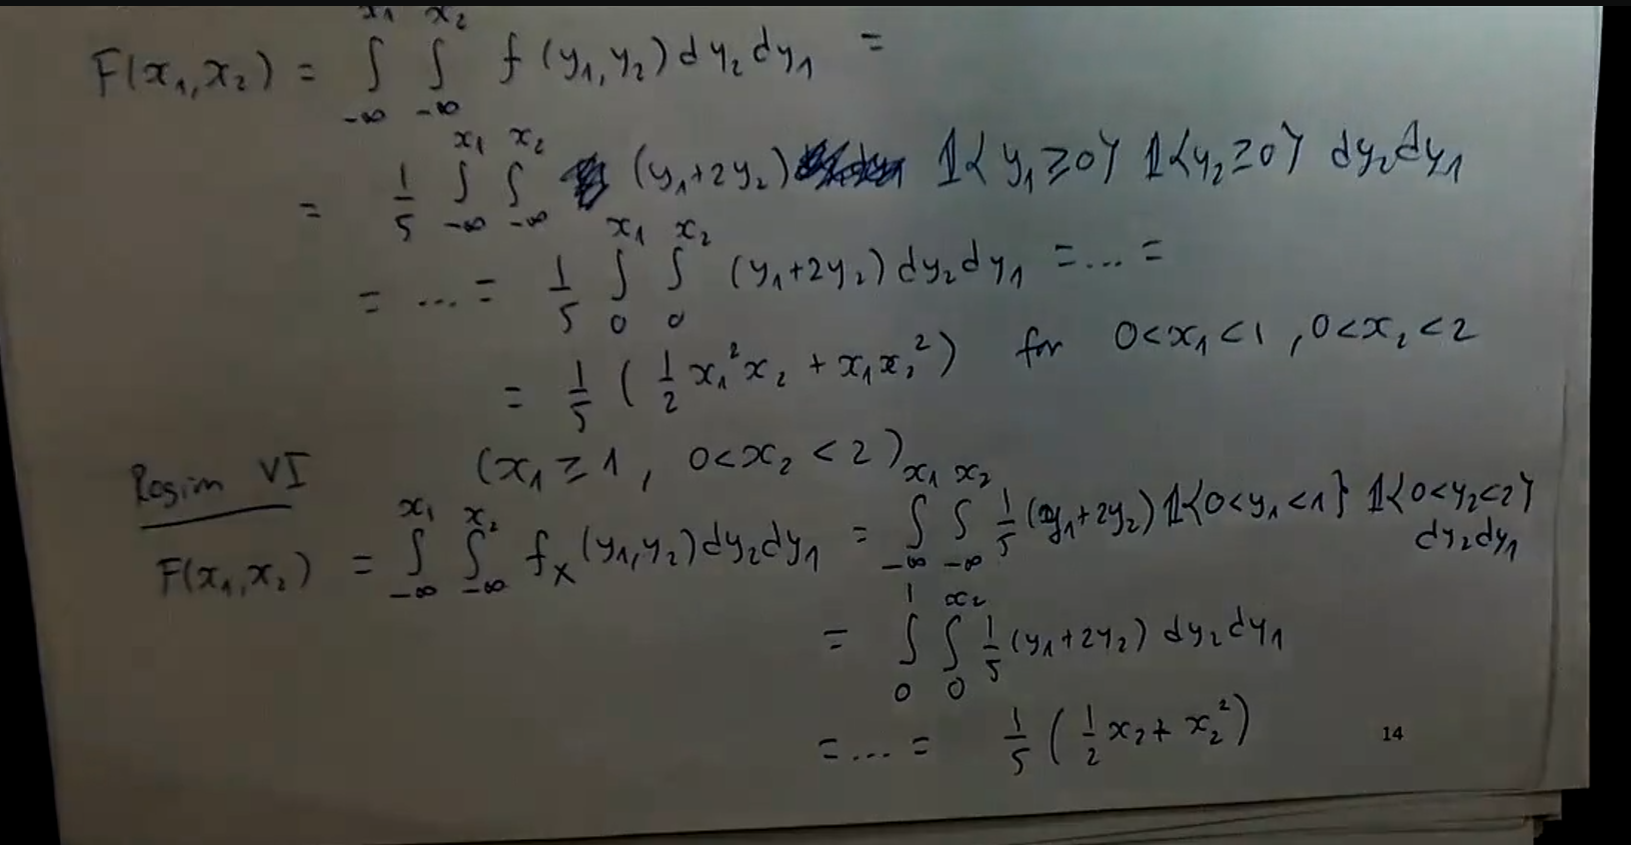 F(x₁,x₂) = ∫_{-∞}^{x₁} ∫_{-∞}^{x₂} f(y₁,y₂) dy₂dy₁ =
= 1/5 ∫_{-∞}^{x₁} ∫_{-∞}^{x₂} (y₁+2y₂) 𝟙{y₁≥0} 𝟙{y₂≥0} dy₂dy₁
= ... = 1/5 ∫_0^{x₁} ∫_0^{x₂} (y₁+2y₂) dy₂dy₁ = ... =
= 1/5 (1/2 x₁²x₂ + x₁x₂²) for 0<x₁<1, 0<x₂<2
Regim VI (x₁≥1, 0<x₂<2)
F(x₁,x₂) = ∫_{-∞}^{x₁} ∫_{-∞}^{x₂} f_X(y₁,y₂)dy₂dy₁ = ∫_{-∞}^{x₁} ∫_{-∞}^{x₂} 1/5 (y₁+2y₂) 𝟙{0<y₁<1} 𝟙{0<y₂<2}
dy₂dy₁
= ∫_0^1 ∫_0^{x₂} 1/5 (y₁+2y₂) dy₂dy₁
= ... = 1/5 (1/2 x₂ + x₂²)
14